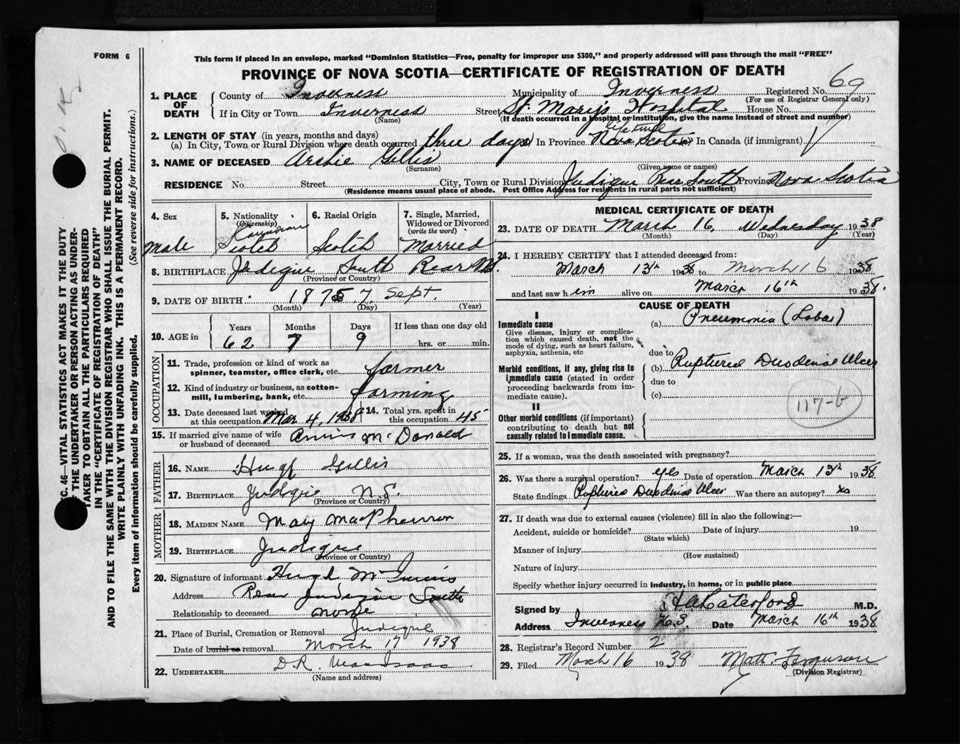 FORM 6
This form if placed in an envelope, marked "Dominion Statistics—Free, penalty for improper use $300," and properly addressed will pass through the mail "FREE"
PROVINCE OF NOVA SCOTIA—CERTIFICATE OF REGISTRATION OF DEATH
69
1. PLACE OF DEATH
County of Inverness Municipality of Inverness Registered No.
(For use of Registrar General only)
If in City or Town Inverness Street St. Mary's Hospital House No.
(Name) (If death occurred in a hospital or institution, give the name instead of street and number)
2. LENGTH OF STAY (in years, months and days)
(a) In City, Town or Rural Division where death occurred three days In Province lifetime Nova Scotia In Canada (if immigrant)
3. NAME OF DECEASED Archie Gillis
(Surname) (Given name or names)
RESIDENCE No. Street City, Town or Rural Division Judique Rear South Province Nova Scotia
(Residence means usual place of abode. Post Office Address for residents in rural parts not sufficient)
4. Sex Male
5. Nationality (Citizenship) Canadian Scotch
6. Racial Origin Scotch
7. Single, Married, Widowed or Divorced (write the word) Married
8. BIRTHPLACE Judique South Rear N.S.
(Province or Country)
9. DATE OF BIRTH: 1875 7 Sept.
(Month) (Day) (Year)
10. AGE in Years 62 Months 7 Days 9 If less than one day old hrs. or min.
OCCUPATION
11. Trade, profession or kind of work as spinner, teamster, office clerk, etc. farmer
12. Kind of industry or business, as cotton-mill, lumbering, bank, etc. farming
13. Date deceased last worked at this occupation Mar 4, 1938 14. Total yrs. spent in this occupation 45
15. If married give name of wife or husband of deceased Annie McDonald
FATHER
16. NAME Hugh Gillis
17. BIRTHPLACE Judique N.S.
(Province or Country)
MOTHER
18. MAIDEN NAME Mary MacPherson
19. BIRTHPLACE Judique
(Province or Country)
20. Signature of informant Hugh McInnis
Address Rear Judique South
Relationship to deceased none
21. Place of Burial, Cremation or Removal Judique
Date of burial or removal March 17 1938
22. UNDERTAKER D.R. MacIsaac
(Name and address)
MEDICAL CERTIFICATE OF DEATH
23. DATE OF DEATH March 16, Wednesday 1938
(Month) (Day) (Year)
24. I HEREBY CERTIFY that I attended deceased from:
March 13th 1938 to March 16 1938
and last saw him alive on March 16th 1938.
CAUSE OF DEATH
I
Immediate cause
Give disease, injury or complication which caused death, not the mode of dying, such as heart failure, asphyxia, asthenia, etc
(a) Pneumonia (Lobar)
due to
Morbid conditions, if any, giving rise to immediate cause (stated in order proceeding backwards from immediate cause).
(b) Ruptured Duodenal Ulcer
due to
(c)
117-b
II
Other morbid conditions (if important) contributing to death but not causally related to immediate cause.
25. If a woman, was the death associated with pregnancy?
26. Was there a surgical operation? yes Date of operation March 13th 1938
State findings Ruptured Duodenal Ulcer Was there an autopsy? no
27. If death was due to external causes (violence) fill in also the following:—
Accident, suicide or homicide? Date of injury 19
(State which)
Manner of injury
(How sustained)
Nature of injury
Specify whether injury occurred in industry, in home, or in public place
Signed by M.D.
Address Inverness N.S. Date March 16th 1938
28. Registrar's Record Number 2
29. Filed March 16 1938 Matt. Ferguson
(Division Registrar)
C. 46—VITAL STATISTICS ACT MAKES IT THE DUTY
THE UNDERTAKER OR PERSON ACTING AS UNDER-
TAKER TO OBTAIN ALL THE PARTICULARS REQUIRED
IN THE "CERTIFICATE OF REGISTRATION OF DEATH"
AND TO FILE THE SAME WITH THE DIVISION REGISTRAR WHO SHALL ISSUE THE BURIAL PERMIT.
WRITE PLAINLY WITH UNFADING INK. THIS IS A PERMANENT RECORD.
Every item of information should be carefully supplied. (See reverse side for instructions.)